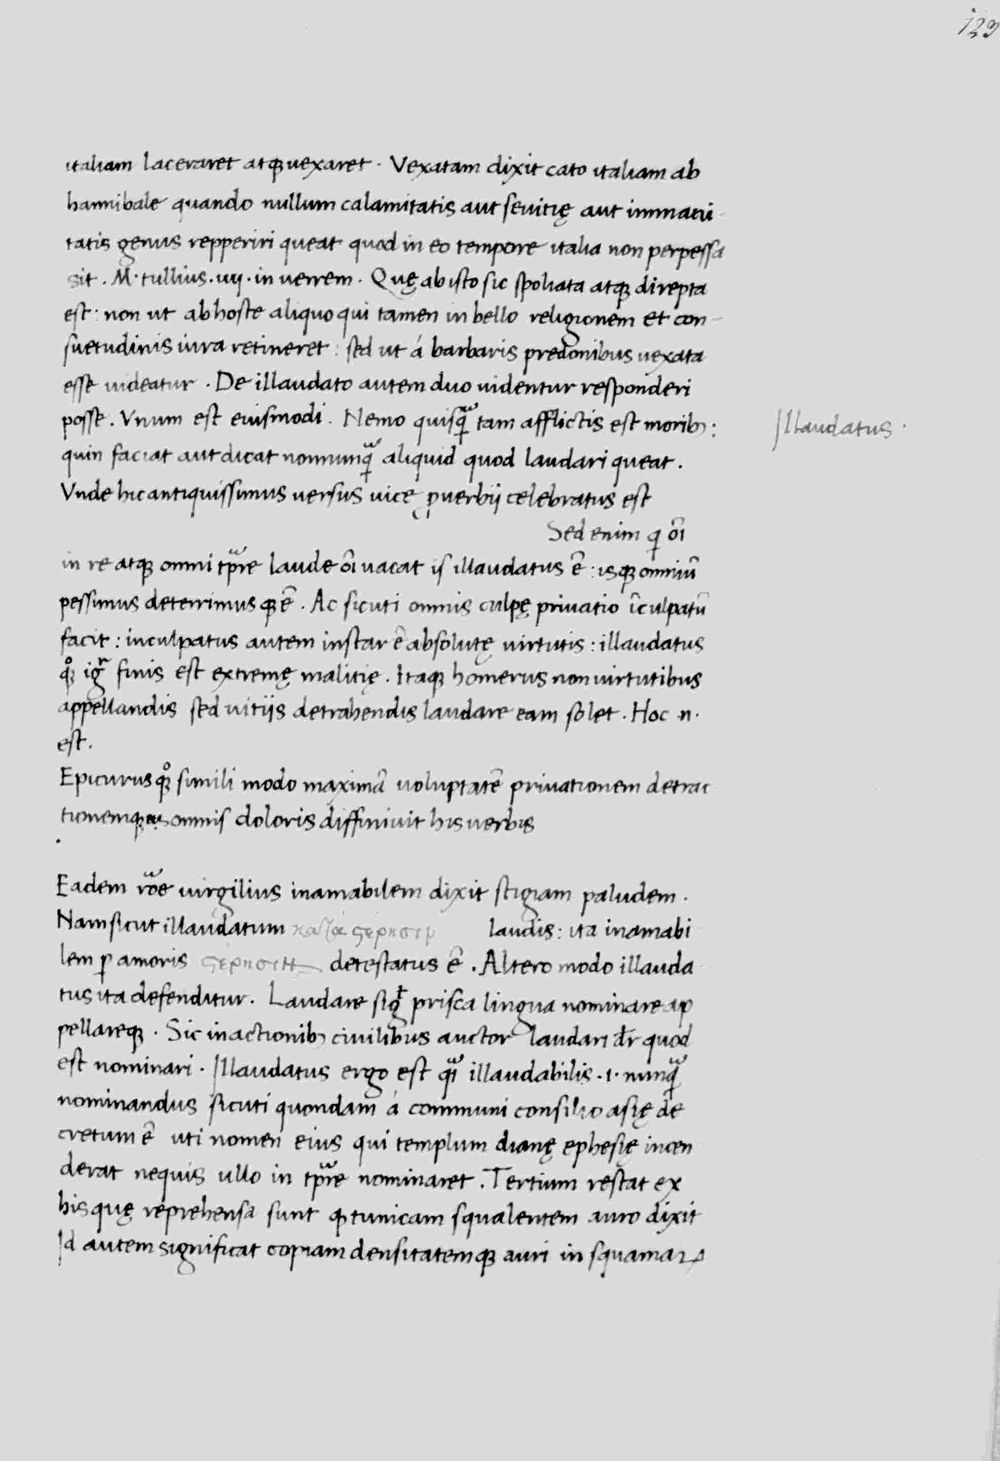 123
italiam laceraret atqꝫ uexaret · Vexatam dixit cato italiam ab
hannibale quando nullum calamitatis aut seuitię aut inmani-
tatis genus repperiri queat quod in eo tempore italia non perpessa
sit . M · tullius . iiij . in uerrem . Quę ab isto sic spoliata atqꝫ direpta
est : non ut ab hoste aliquo qui tamen in bello religionem et con-
suetudinis iura retineret : sed ut á barbaris predonibus uexata
esse uideatur . De illaudato autem duo uidentur responderi
posse . Vnum est eiusmodi . Nemo quisqᷓ tam afflictis est moribꝫ :
Illaudatus ·
quin faciat aut dicat nonnunqᷓ aliquid quod laudari queat .
Vnde hic antiquissimus uersus uice ꝓuerbij celebratus est
Sed enim q oı̄
in re atqꝫ omni tp̄re laude oı̄ uacat is illaudatus ē : isqꝫ omniū
pessimus deterrimusqꝫ ē . Ac sicuti omnis culpę priuatio īculpatū
facit : inculpatus autem instar ē absolutę uirtutis : illaudatus
qꝫͦ igr̄ finis est extremę malitię . Itaqꝫ homerus non uirtutibus
appellandis sed uitijs detrahendis laudare eam solet . Hoc .n.
est .
Epicurus qꝫͦ simili modo maximā uoluptatē priuationem detrac
tionemqꝫ omnis doloris diffiniuit his uerbis
Eadem rōe uirgilius inamabilem dixit stigiam paludem .
Nam sicut illaudatum laudis : ita inamabi
lem ꝑ amoris detestatus ē . Altero modo illauda
tus ita defenditur . Laudare sigᵗ prisca lingua nominare ap
pellareqꝫ . Sic in actionibꝫ ciuilibus auctor laudari dr̄ quod
est nominari . Illaudatus ergo est qᷓı illaudabilis .i. nunqᷓ
nominandus sicuti quondam á communi consilio asię de
cretum ē uti nomen eius qui templum dianę ephesię incen
derat nequis ullo in tp̄re nominaret . Tertium restat ex
his quę reprehensa sunt ꝙ tunicam squalentem auro dixit
Id autem significat copiam densitatemqꝫ auri in squamaꝝ